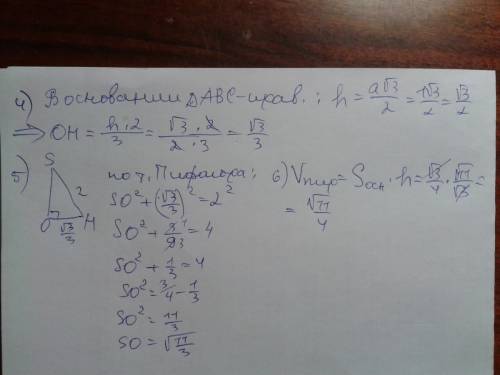 4) В основании ΔABC-прав.; h = a√3/2 = 1√3/2 = √3/2
⇒ OH = h·2/3 = √3·2/2·3 = √3/3
5) S 2 O H √3/3
по т. Пифагора:
SO² + (√3/3)² = 2²
SO² + 3¹/9₃ = 4
SO² + 1/3 = 4
SO² = 3/4 - 1/3
SO² = 11/3
SO = √11/3
6) Vпир = Sосн · h = √3/4 · √11/√3 =
= √11/4